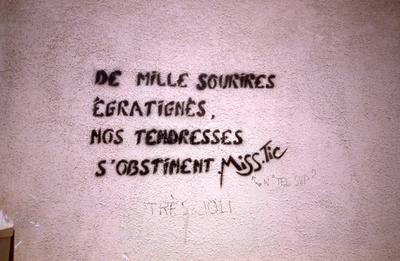 DE MILLE SOURIRES
ÉGRATIGNÉS,
NOS TENDRESSES
S'OBSTINENT. Miss.Tic
N° TEL SVP?
TRÈS JOLI